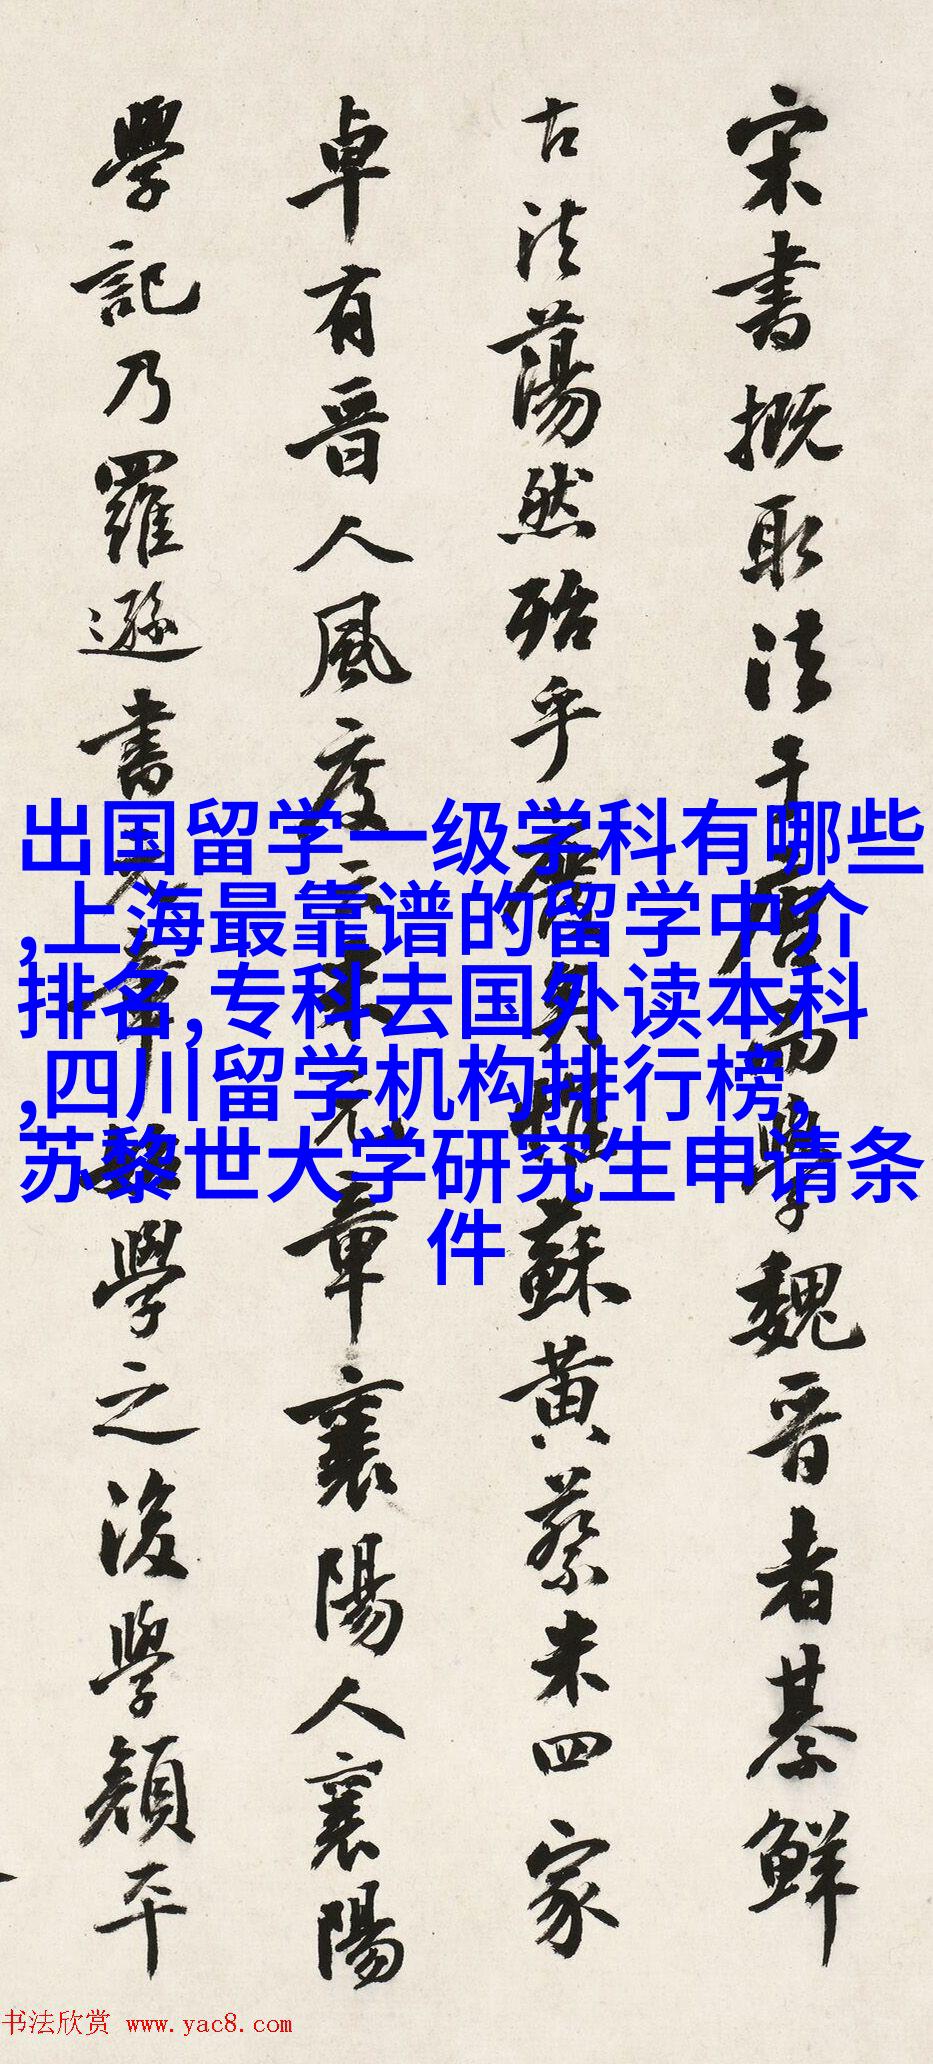 宋書概取法于唐而學魏晋者綦鮮
古法蕩然殆乎廢矣惟蘇黄蔡米四家
卓有晋人風度米元章襄陽人襄陽
學記乃羅遜書元章學之後學顔平
出国留学一级学科有哪些
,上海最靠谱的留学中介
排名,专科去国外读本科
,四川留学机构排行榜,
苏黎世大学研究生申请条
件
书法欣赏 www.yac8.com